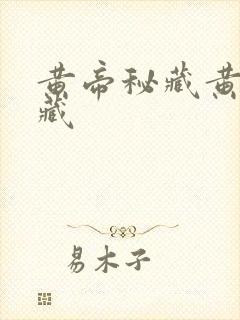 黄帝秘藏黄
藏
易木子